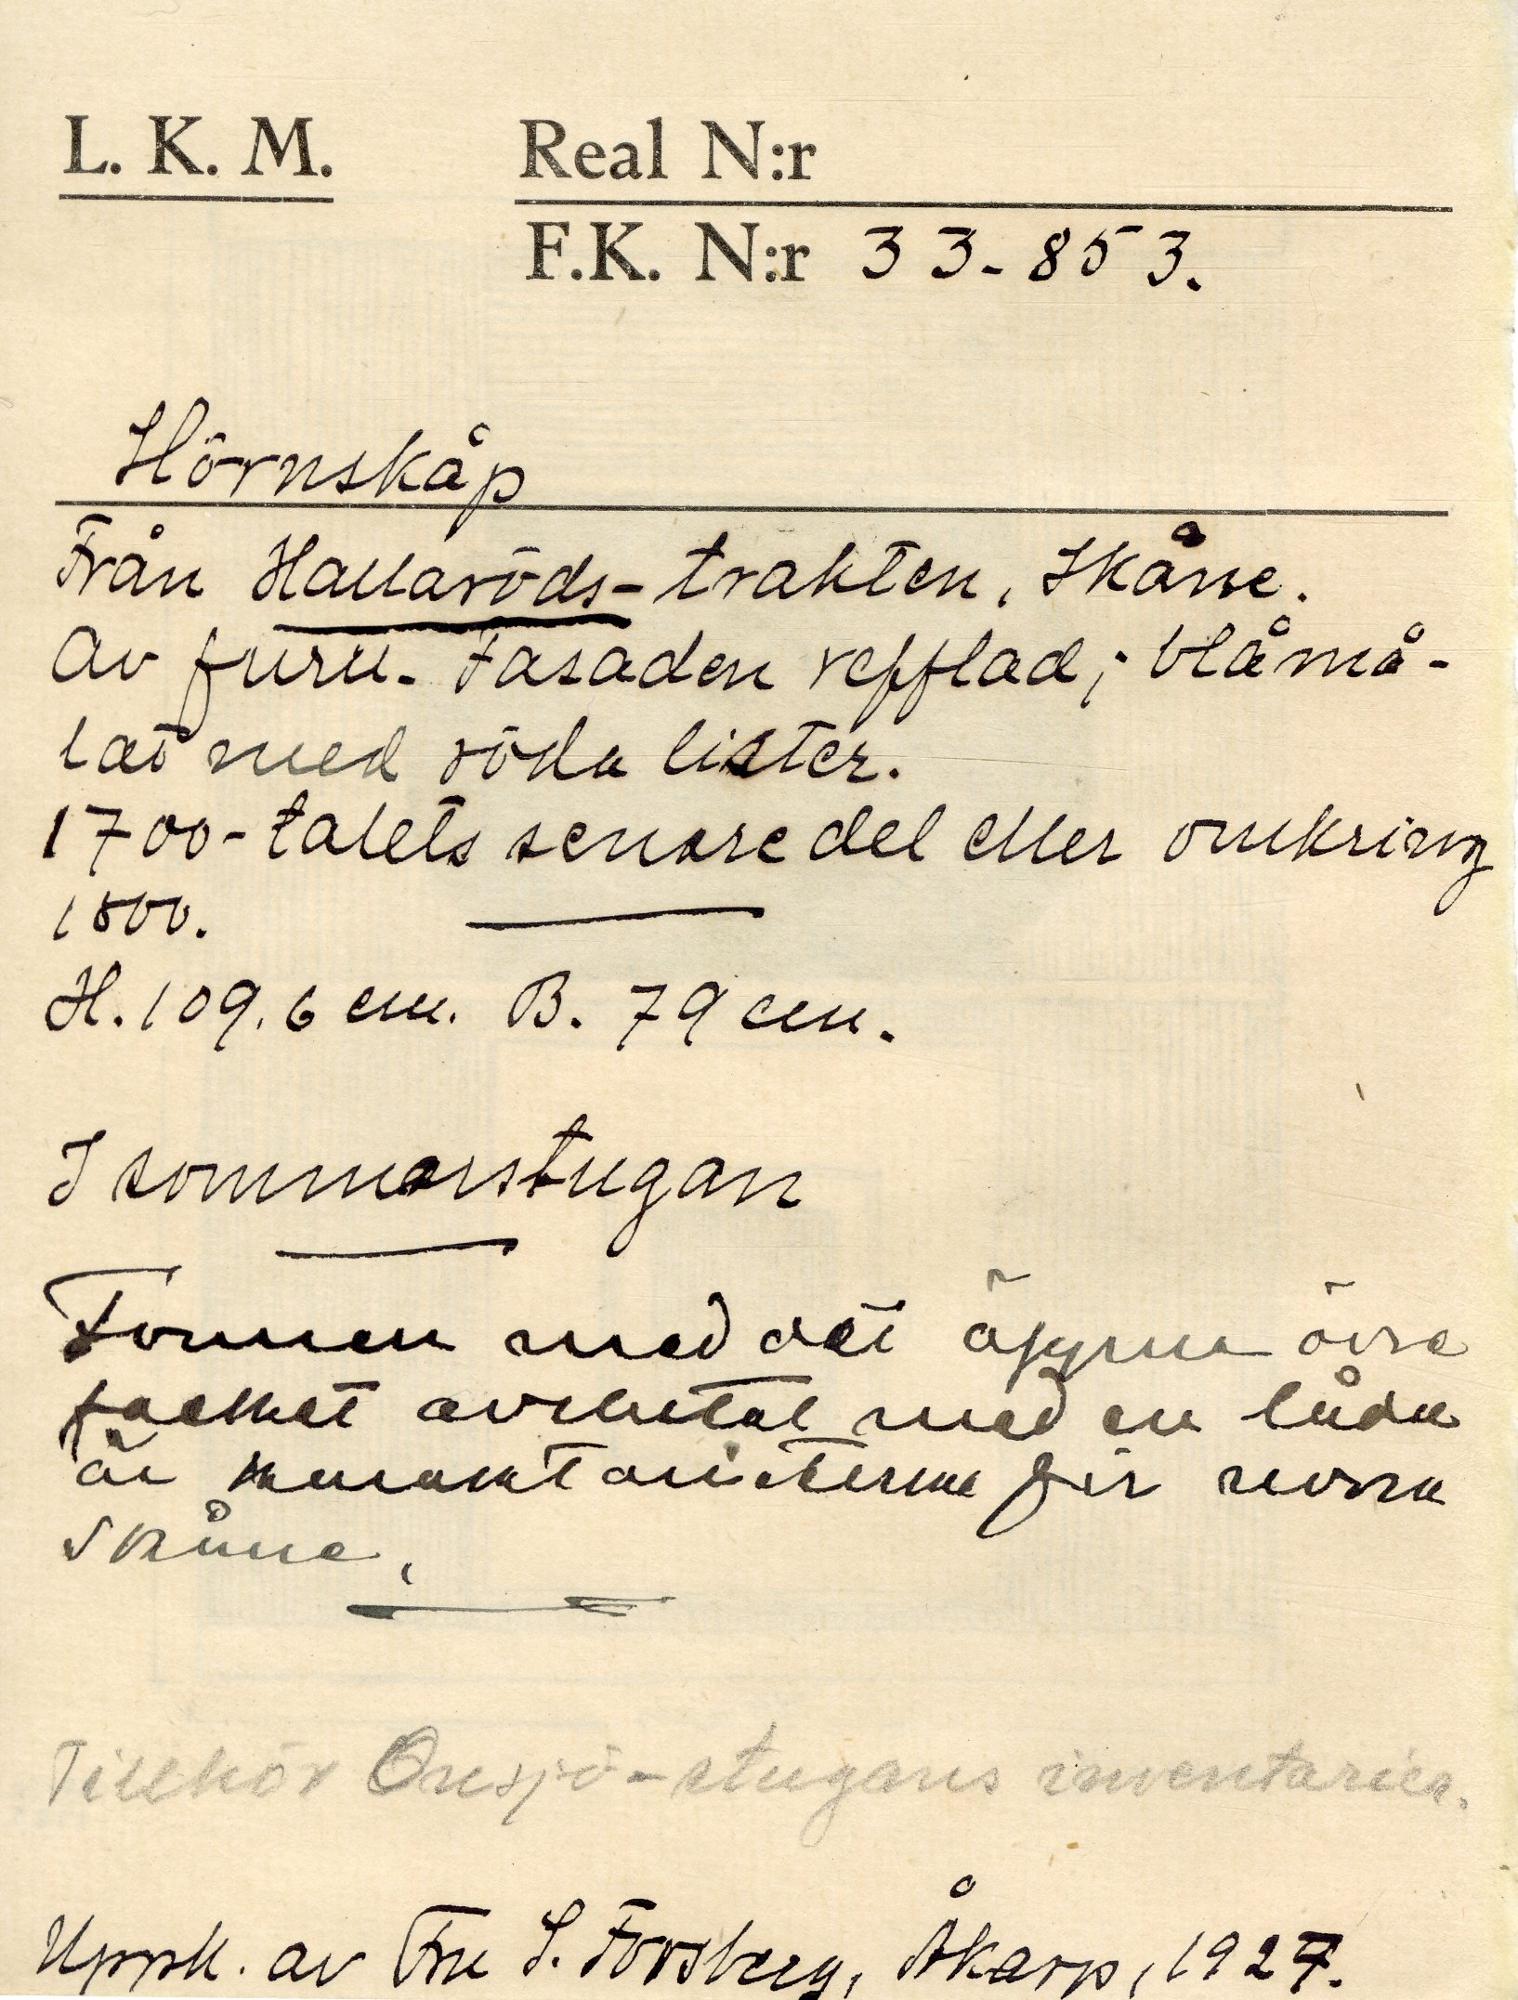 L. K. M. Real N:r
F.K. N:r 33-853.
Hörnskåp
Från Hallaröds-trakten, Skåne.
Av furu. Fasaden refflad; blåmå-
lat med röda lister.
1700-talets senare del eller omkring
1800.
H. 109,6 cm. B. 79 cm.
I sommarstugan
Formen med det öppna övre
facket avslutat med en låda
är karaktäristisk för norra
Skåne.
Tillhör Onsjö-stugans inventarier.
Uppk. av Fru S. Forsberg, Åkarp, 1927.